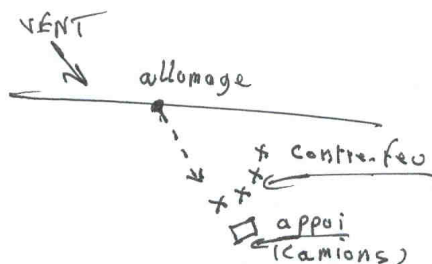 VENT
allumage
contre-feu
appui
(camions)